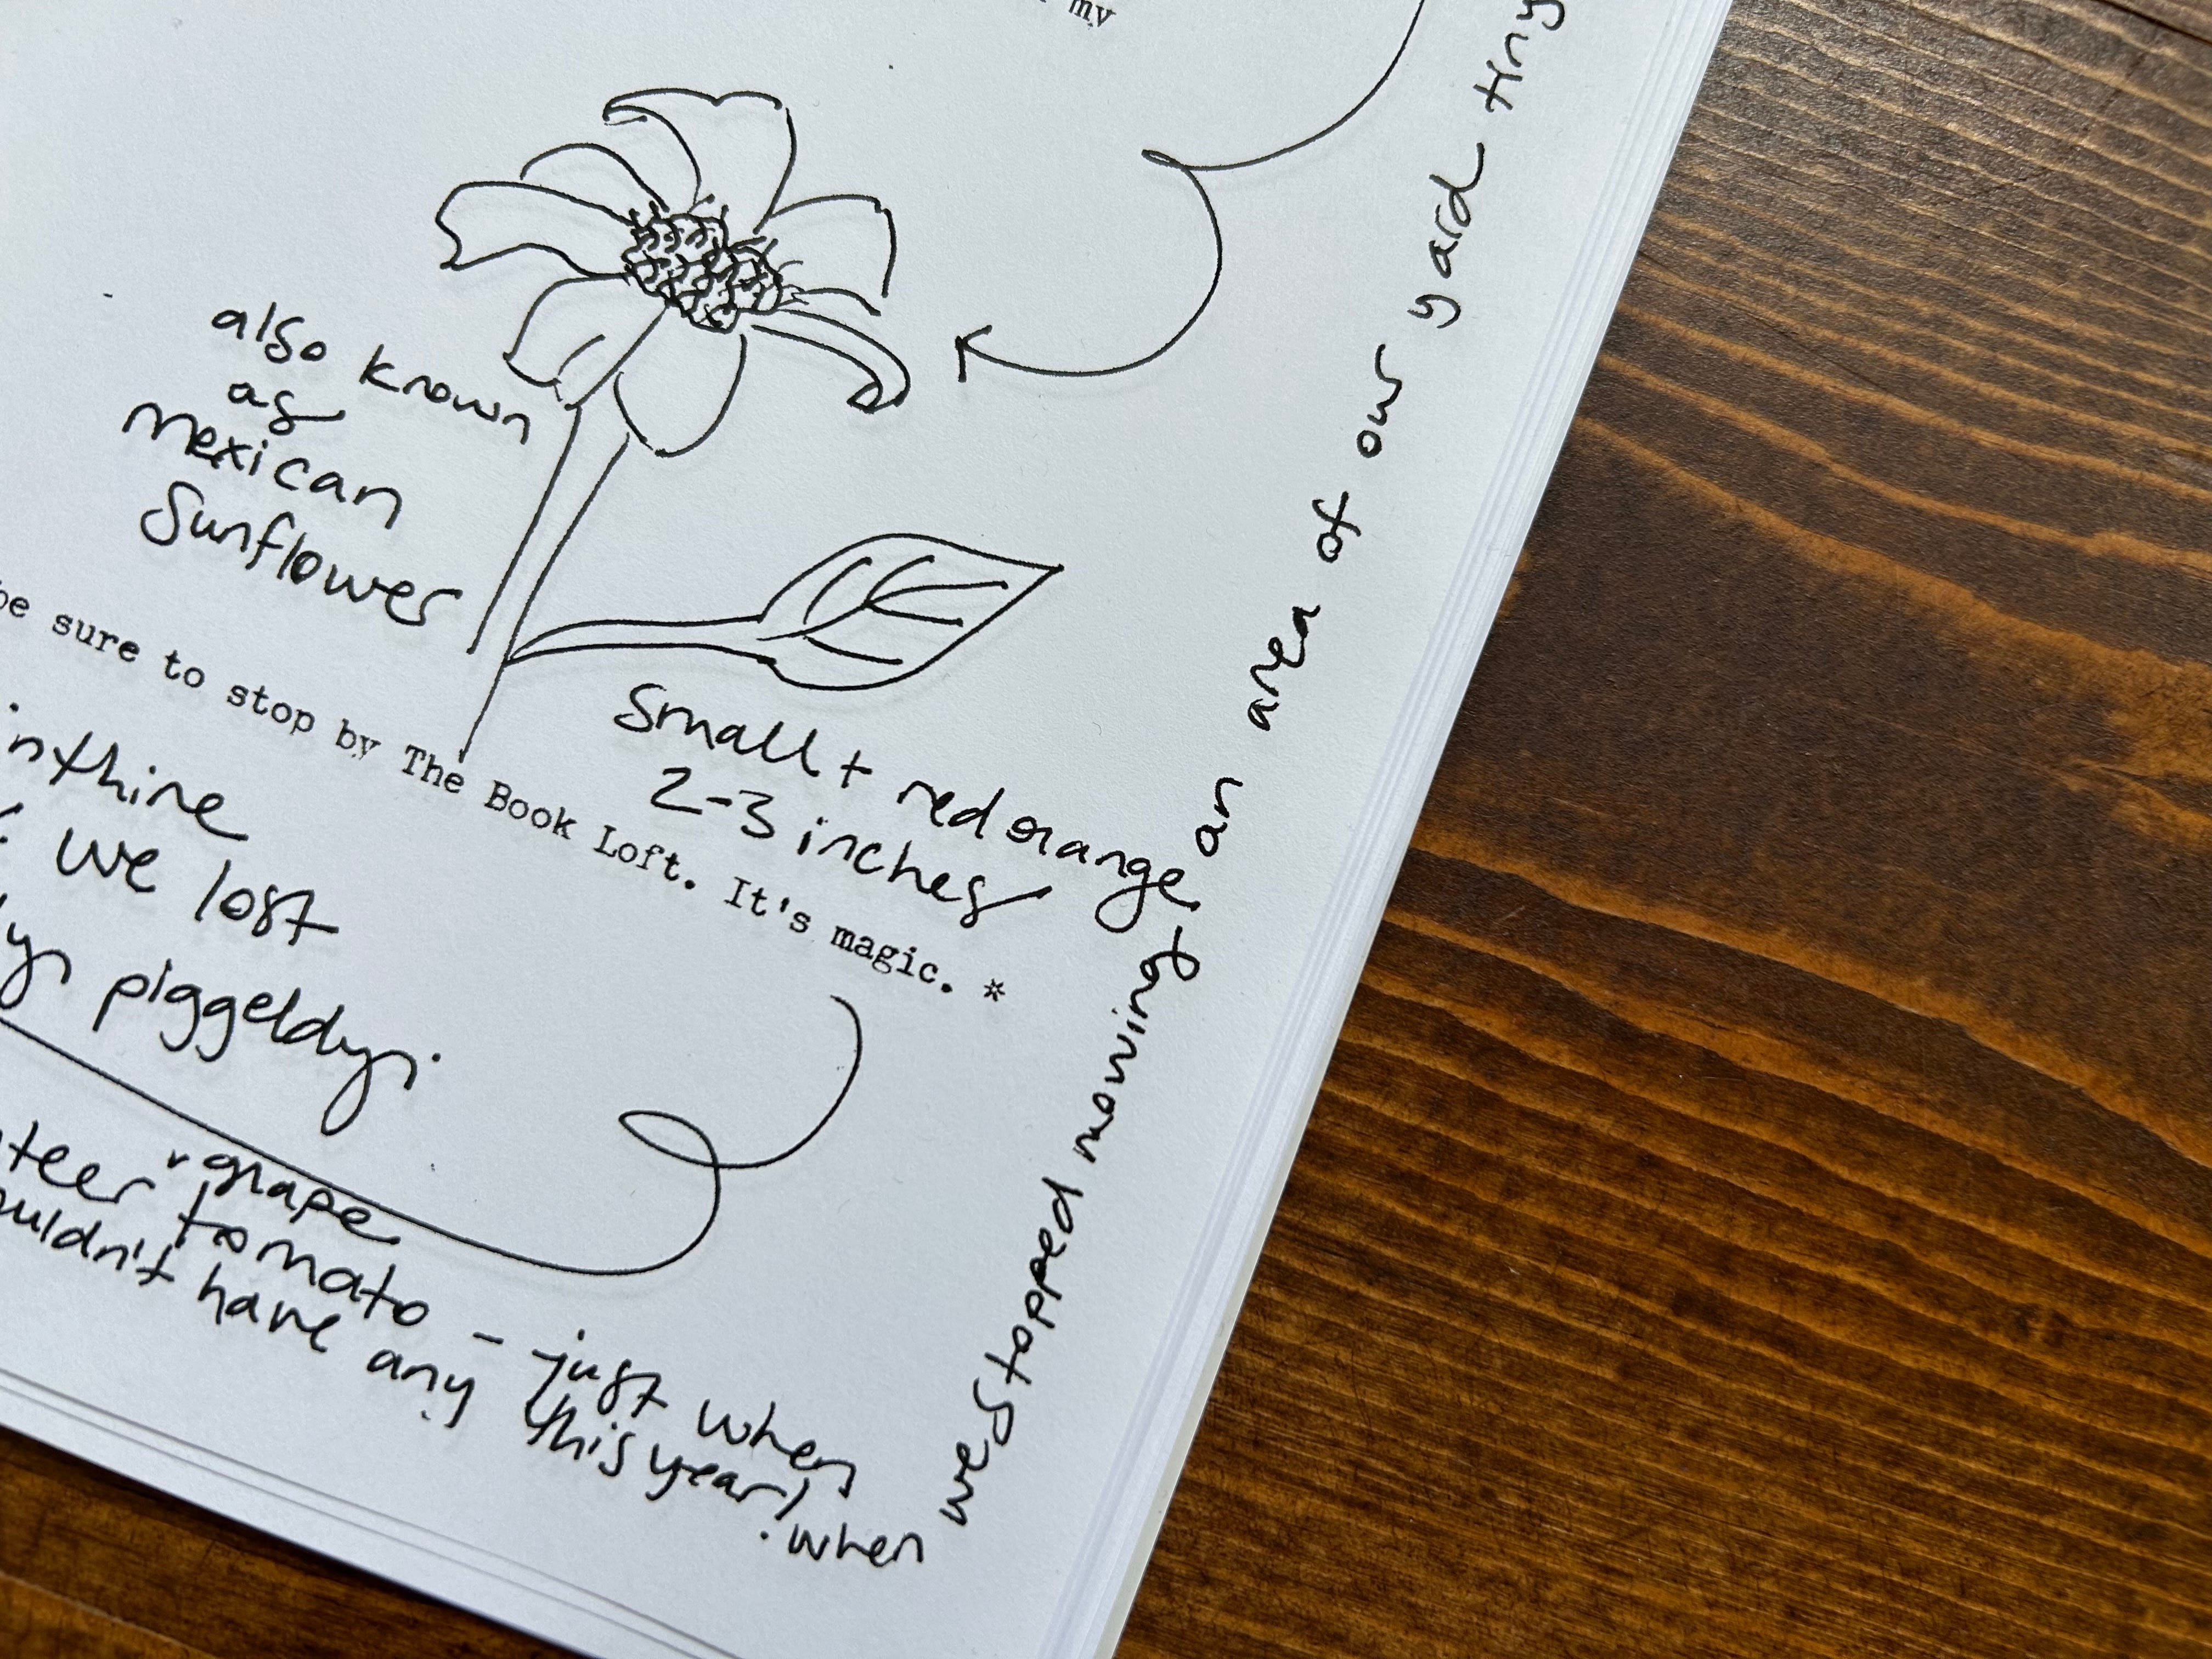 my
also known
as
mexican
Sunflower
be sure to stop by The Book Loft. It's magic. *
Small + red orange,
2-3 inches
we lost
piggeldy.
grape
tomato - just when
have any this year! . when
we stopped mowing an area of our yard tiny